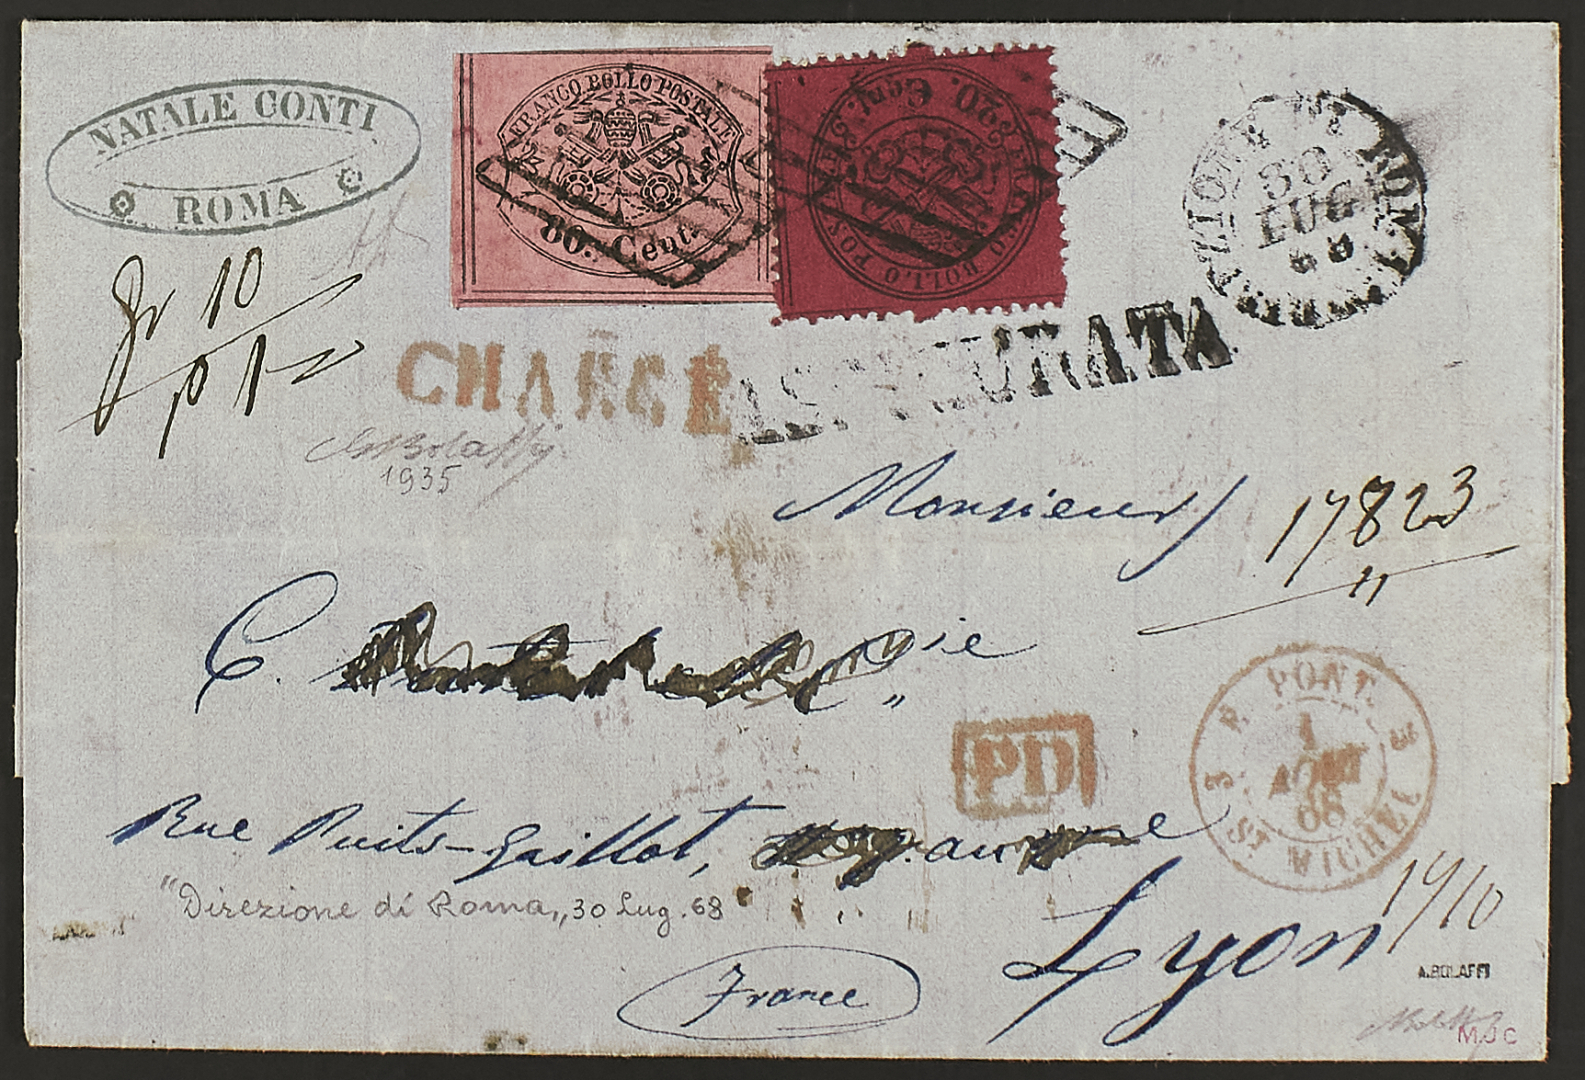 NATALE CONTI
ROMA
FRANCO BOLLO POSTALE
80. Cent.
20. Cent.
FRANCO BOLLO POSTALE
DIREZIONE DI ROMA
30
LUG
68
gr 10
p 1
CHARGÉ
ASSICURATA
1935
Monsieur
17823
"
C. Cie
"
E. PONT. 3
1
AOUT
68
3 ST MICHEL
PD
Rue Puits-Gaillot,
"Direzione di Roma„ 30 Lug. 68
Lyon
14/10
France
A.BOLAFFI
M.J C